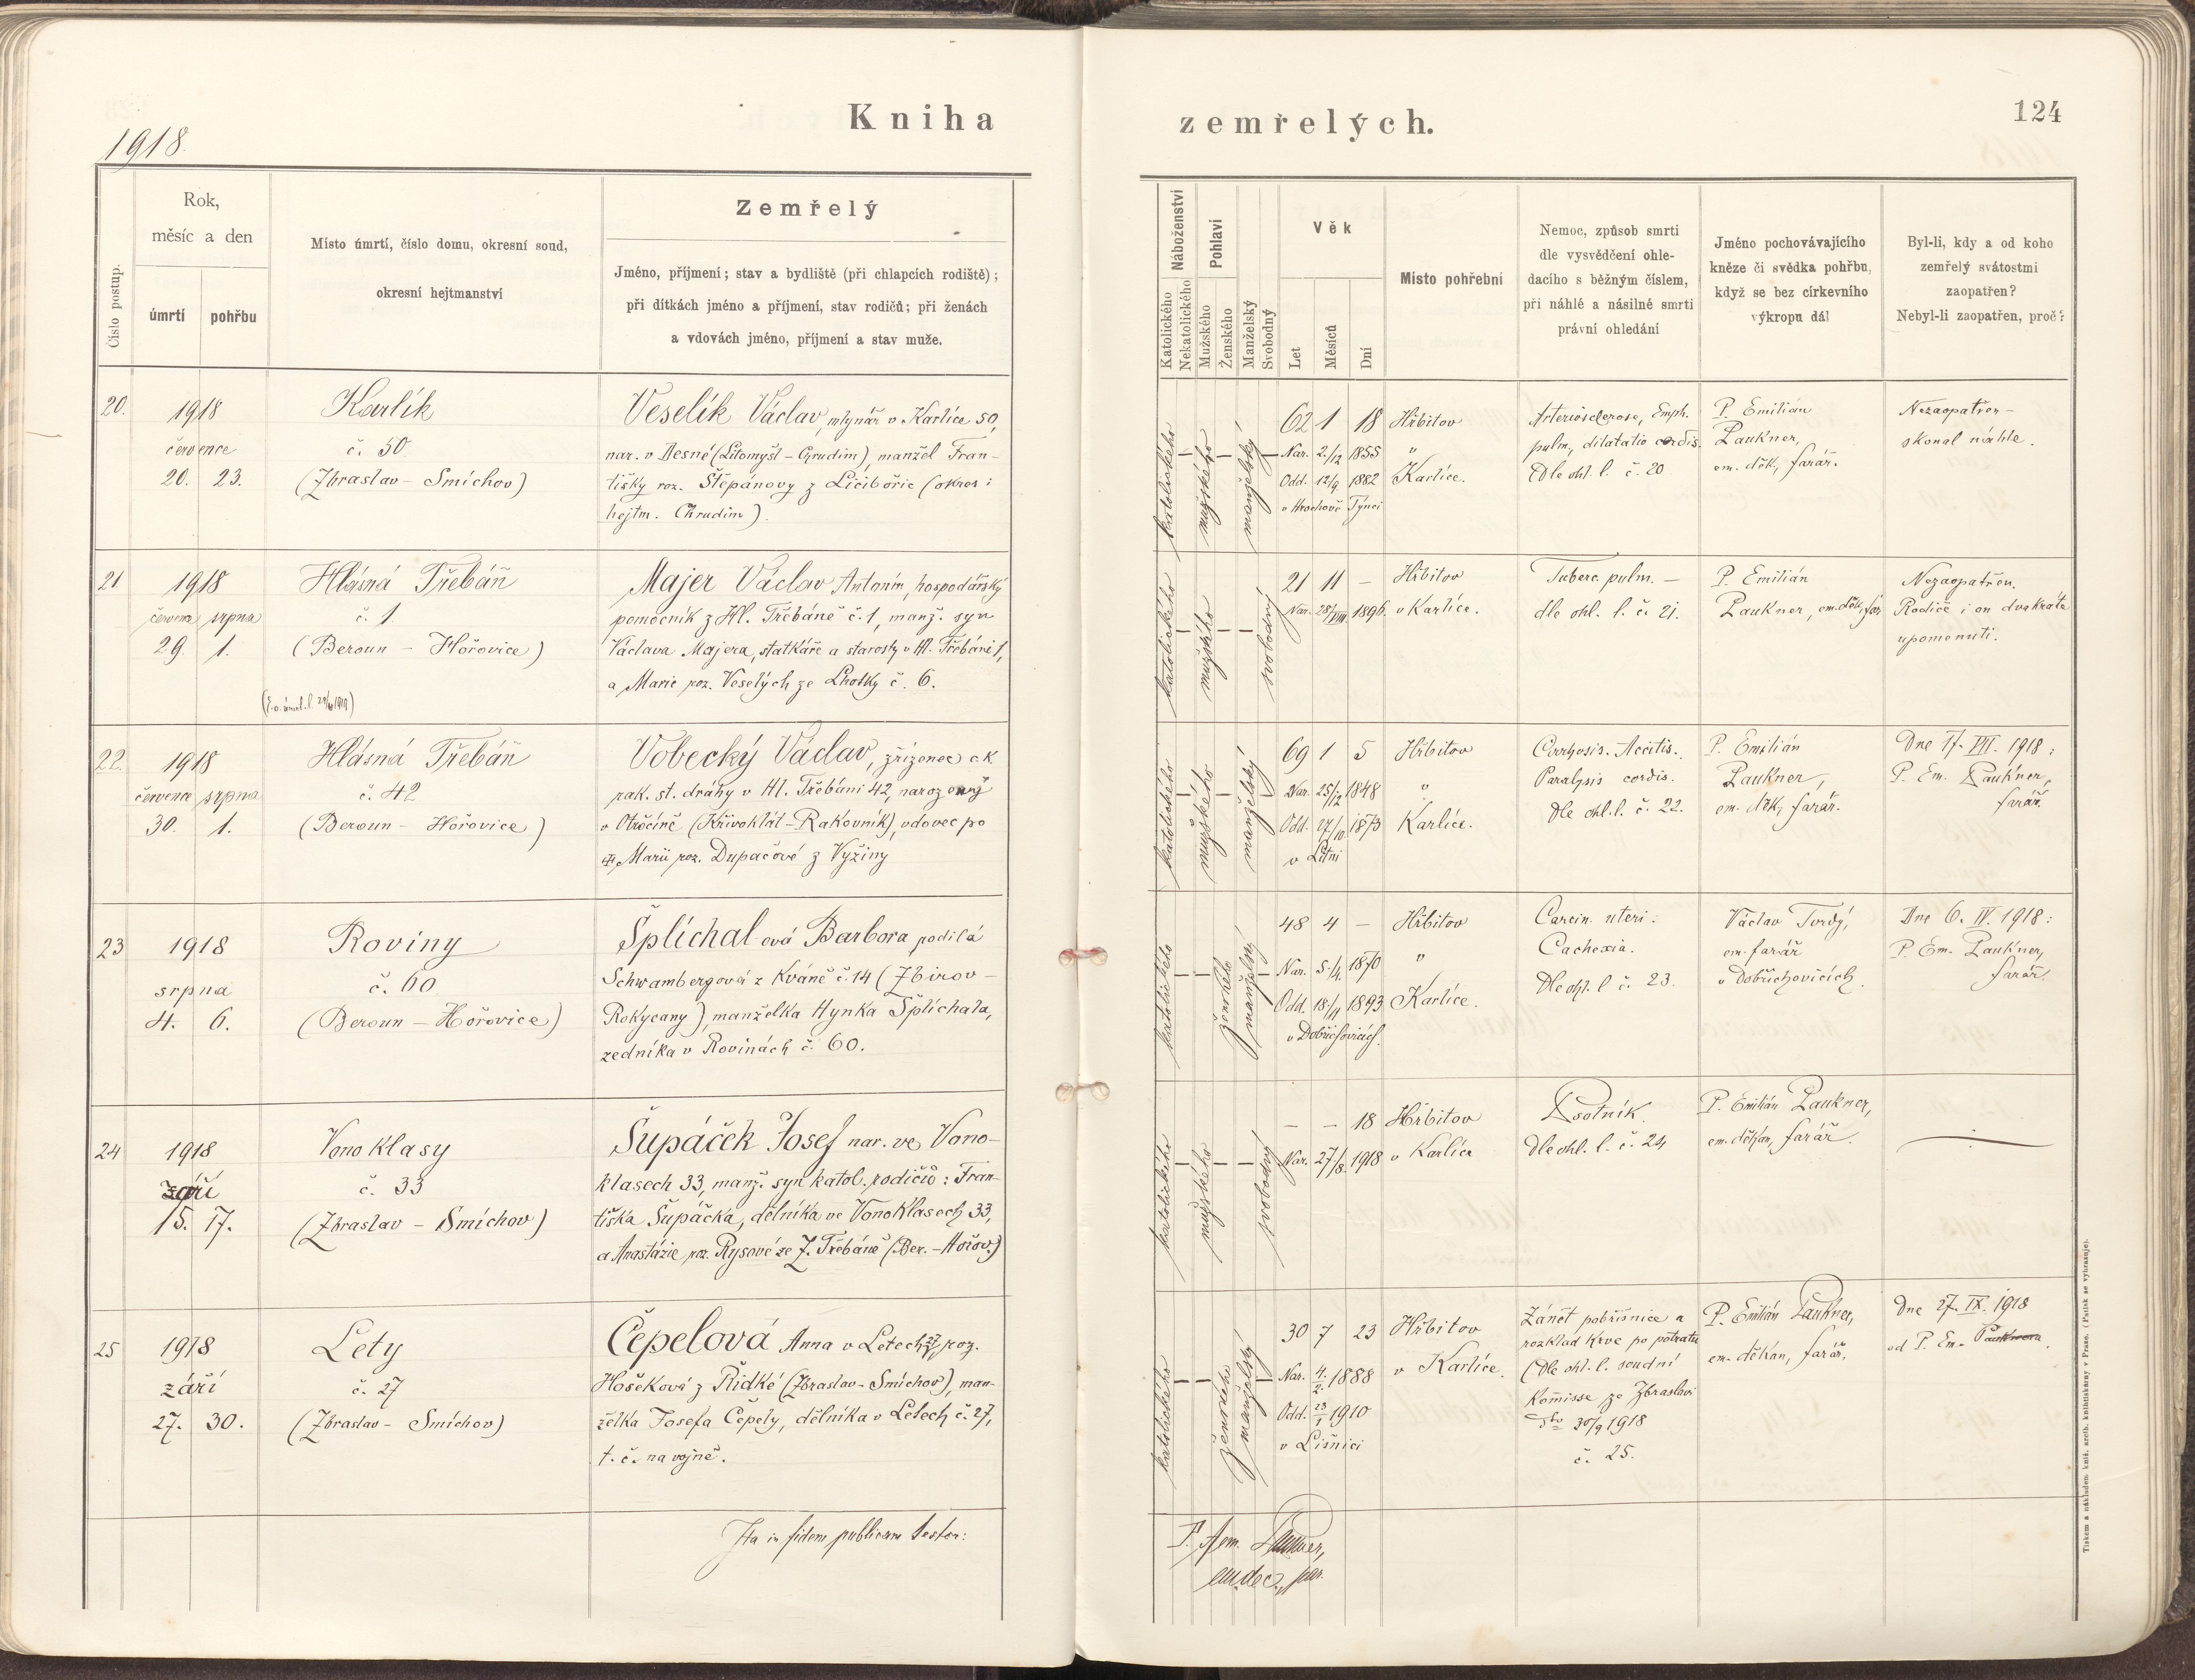 1918.
Kniha
zemřelých.
124
Číslo postup.
Rok,
měsíc a den
úmrtí
pohřbu
Místo úmrtí, číslo domu, okresní soud,
okresní hejtmanství
Zemřelý
Jméno, příjmení; stav a bydliště (při chlapcích rodiště);
při dítkách jméno a příjmení, stav rodičů; při ženách
a vdovách jméno, příjmení a stav muže.
Náboženství
Katolického
Nekatolického
Pohlaví
Mužského
Ženského
Manželský
Svobodný
Věk
Let
Měsíců
Dní
Místo pohřební
Nemoc, způsob smrti
dle vysvědčení ohle-
dacího s běžným číslem,
při náhlé a násilné smrti
právní ohledání
Jméno pochovávajícího
kněze či svědka pohřbu,
když se bez církevního
výkropu dál
Byl-li, kdy a od koho
zemřelý svátostmi
zaopatřen?
Nebyl-li zaopatřen, proč?
20.
1918
července
20. 23.
Karlík
č. 50
(Zbraslav - Smíchov)
Veselík Václav, mlynář v Karlíce 50,
nar. v Desné (Litomyšl - Chrudim), manžel Fran-
tišky roz. Štěpánovy z Licibořic (okres i
hejtm. Chrudim).
katolického
mužského
manželský
62 1 18
Nar. 2./12 1855
Odd. 12/9. 1882
v Hrochově Týnci
Hřbitov
v
Karlíce.
Arteriosclerose, Emph.
pulm., dilatatio cordis.
Dle ohl. l. č. 20
P. Emilián
Paukner,
em. děk., farář.
Nezaopatřen -
skonal náhle.
21
1918
července srpna
29. 1.
Hlásná Třebáň
č. 1.
(Beroun - Hořovice)
Majer Václav Antonín, hospodářský
pomocník z Hl. Třebáně č. 1, manž. syn
Václava Majera, statkáře a starosty v Hl. Třebáni 1,
a Marie roz. Veselých ze Lhotky č. 6.
katolického
mužského
svobodný
21 11 -
Nar. 28/VIII. 1896.
Hřbitov
v Karlíce.
Tuberc. pulm. -
dle ohl. l. č. 21.
P. Emilián
Paukner, em. děk., far
Nezaopatřen.
Rodiče i on dvakráte
upomenuti.
22.
1918
července srpna
30. 1.
Hlásná Třebáň
č. 42
(Beroun - Hořovice)
Vobecký Václav, zřízenec c.k
rak. st. dráhy v Hl. Třebáni 42, narozený
v Otročíně (Křivoklát - Rakovník), vdovec po
Marii roz. Dupačové z Vyžiny
katolického
mužského
manželský
69 1 5
Nar. 25/12 1848
Odd. 27/10. 1873
v Litni
Hřbitov
v
Karlíce.
Cirrhosis. Accitis.
Paralysis cordis.
Dle ohl. l. č. 22.
P. Emilián
Paukner,
em. děk., farář.
Dne 17. VII. 1918:
P. Em. Paukner,
farář.
23
1918
srpna
4. 6.
Roviny
č. 60
(Beroun - Hořovice)
Šplíchalová Barbora, rodilá
Schwambergová z Kváně č. 14 (Zbirov -
Rokycany), manželka Hynka Šplíchala,
zedníka v Rovinách č. 60.
katolického
ženského
manželský
48 4 -
Nar. 5./4. 1870
Odd. 18./11 1893
v Dobřichovicích.
Hřbitov
v
Karlíce.
Carcin. uteri.
Cachexia.
Dle ohl. l č. 23.
Václav Tvrdý,
em. farář
v Dobřichovicích.
Dne 6. IV. 1918:
P. Em. Paukner,
farář.
24
1918
září
15. 17.
Vonoklasy
č. 33
(Zbraslav - Smíchov)
Šupáček Josef nar. ve Vono-
klasech 33, manž. syn katol. rodičů: Fran-
tiška Šupáčka, dělníka ve Vonoklasech 33,
a Anastázie roz. Rysové ze Z. Třebáně (Ber. - Hořov.)
katolického
mužského
svobodný
- - 18
Nar. 27/8. 1918
Hřbitov
v Karlíce
Psotník.
Dle ohl. l. č. 24
P. Emilián Paukner,
em. děkan, farář.
25
1918
září
27. 30.
Lety
č. 27
(Zbraslav - Smíchov)
Čepelová Anna v Letech 27, roz.
Hošeková z Řidké (Zbraslav - Smíchov), man-
želka Josefa Čepely, dělníka v Letech č. 27,
t. č. na vojně.
katolického
ženského
manželský
30 7 23
Nar. 4/2. 1888
Odd. 23/1 1910
v Lišnici
Hřbitov
v Karlíce.
Zánět pobřišnice a
rozklad krve po potratu
(Dle ohl. l. soudní
Komisse ze Zbraslavi
30/9 1918
č. 25.
P. Emilián Paukner,
em. děkan, farář.
Dne 27. IX. 1918
od P. Em. Pauknera.
Ita in fidem publicam testor:
P. Aem. Paukner,
em. dec., par.
Tiskem a nákladem kníž. arcib. knihtiskárny v Praze. (Patisk se vyhrazuje).